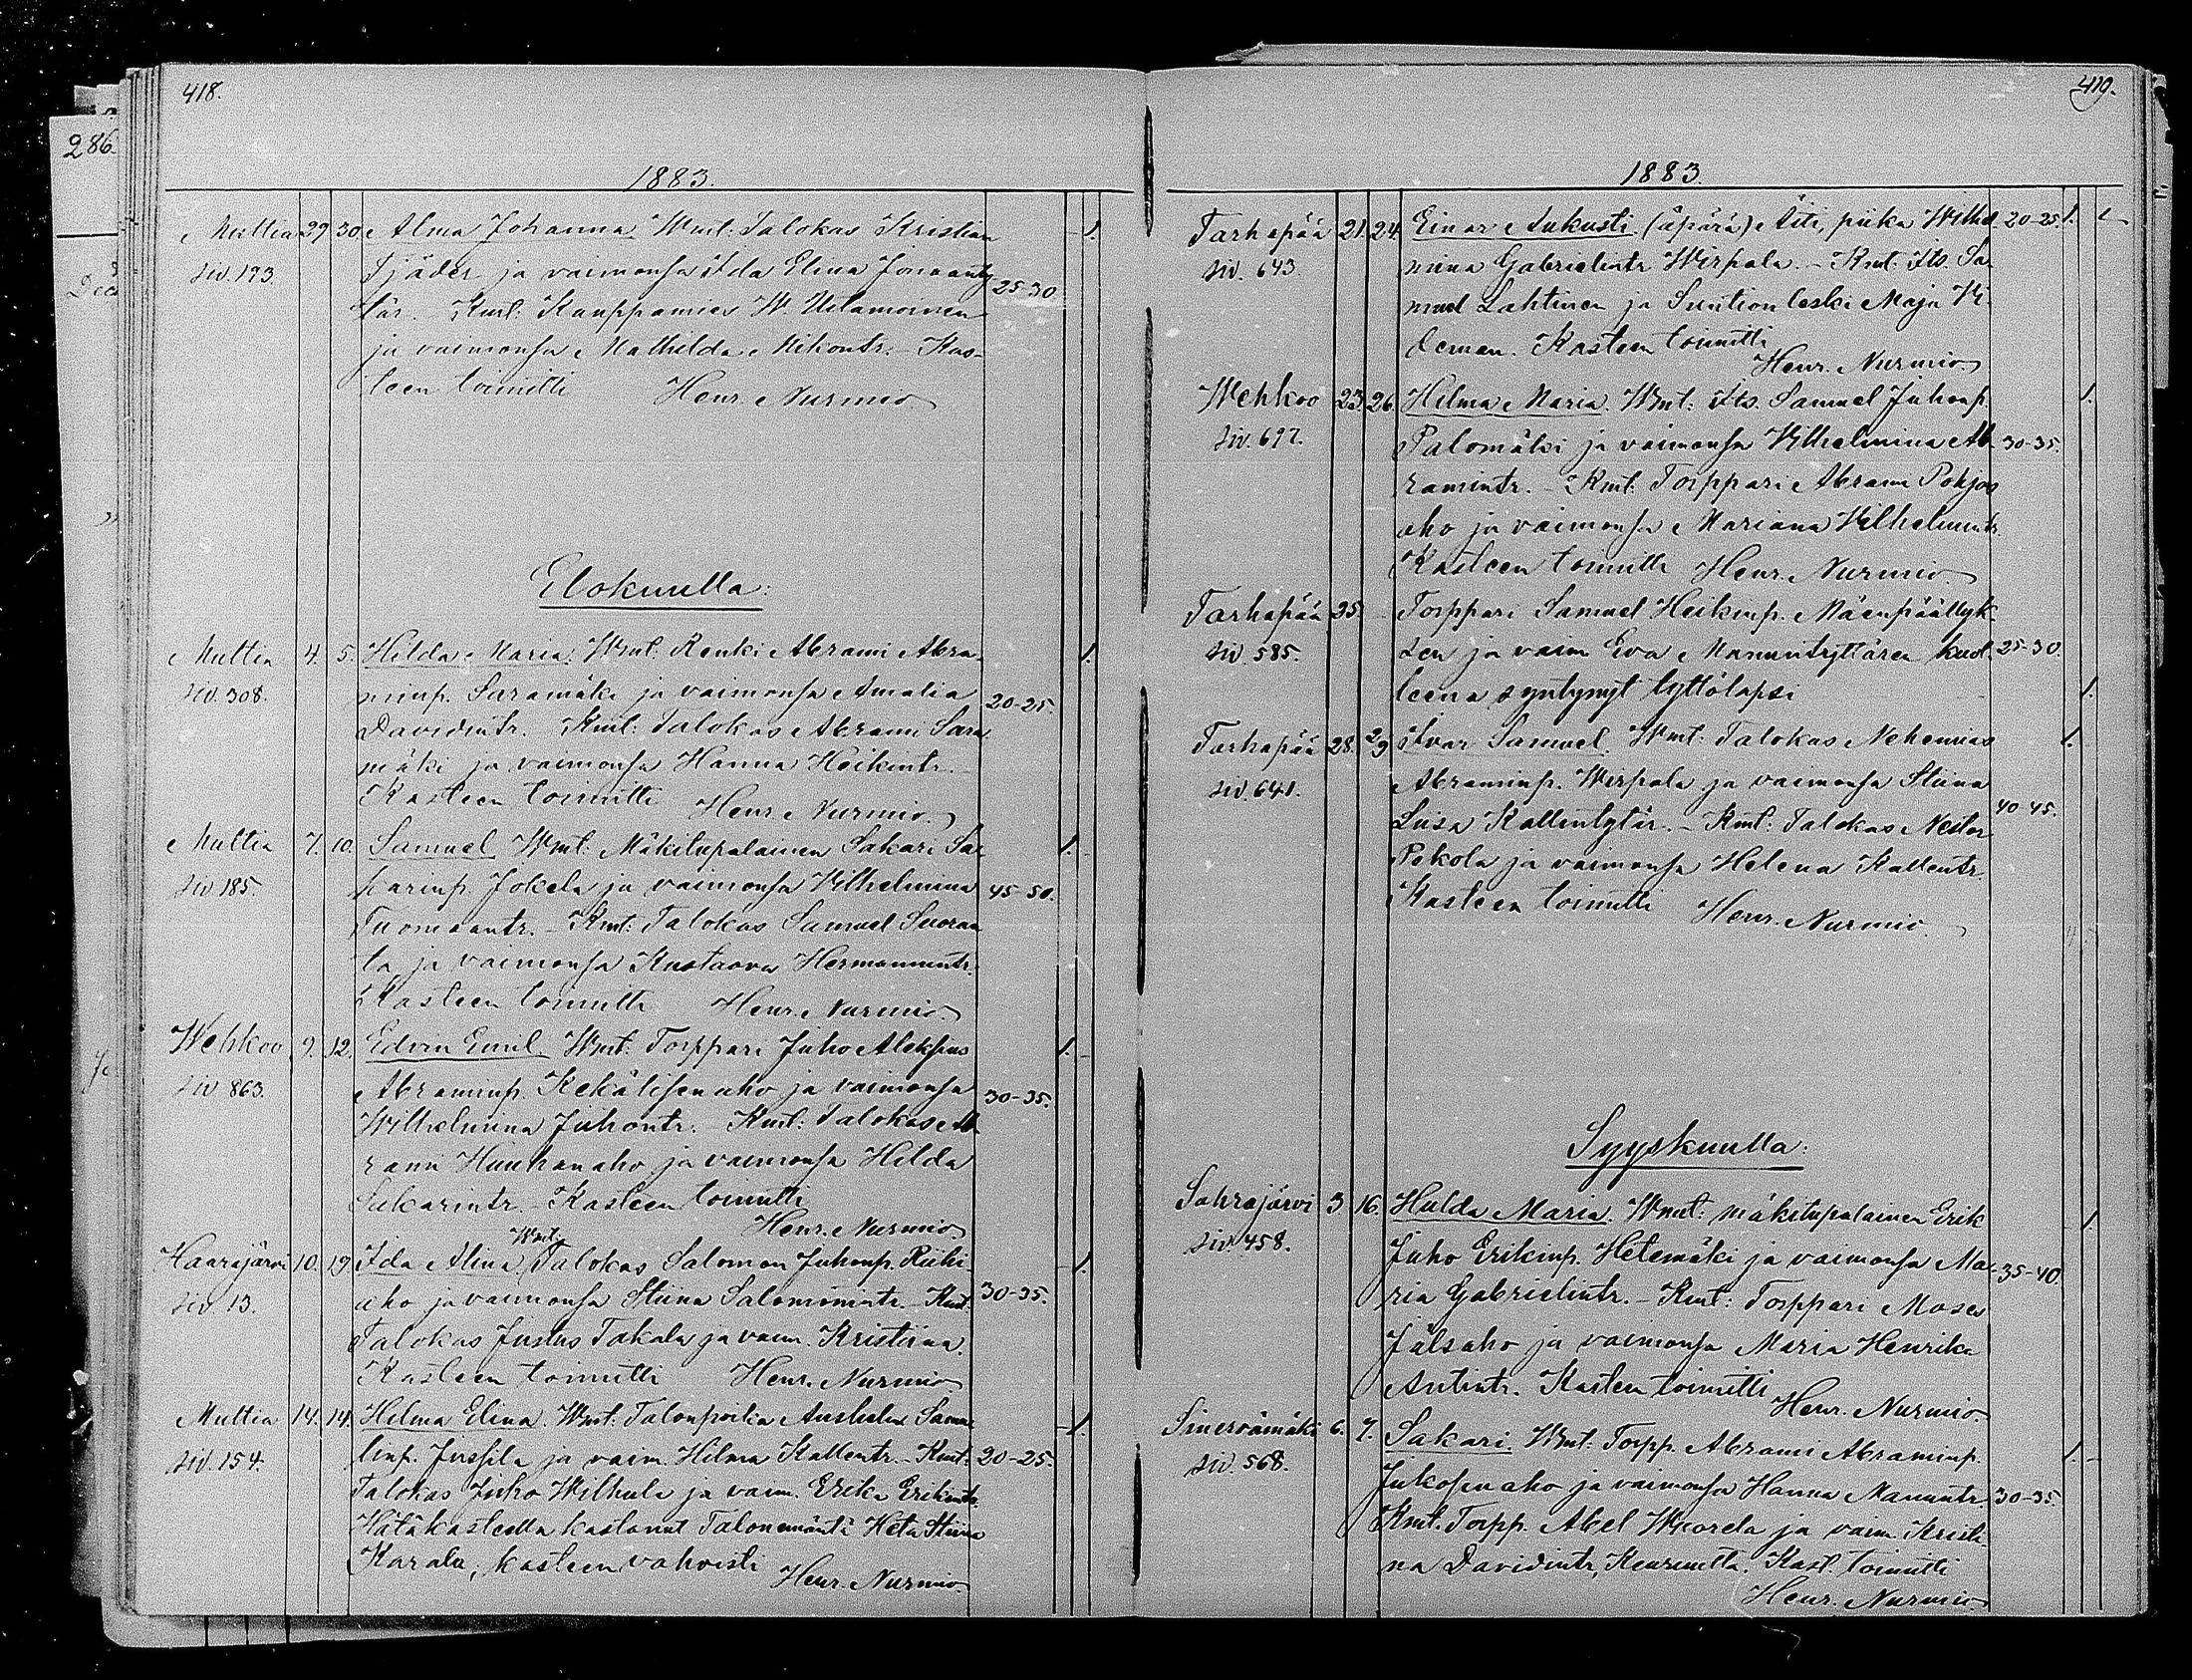 418.
286.
1883.
Multia 29 30 Alma Johanna. Wmt: Talokas Kristian 1.
siv. 193. Sjäder ja vaimonsa Ida Elina Joonaanty
25-30
tär. Kmt: Kauppamies W.
ja vaimonsa Mathilda Mikontr. Kas-
teen toimitti Henr. Nurmio
Elokuulla:
Multia 4. 5. Hilda Maria. Wmt. Renki Abrami Abra- 1.
siv. 308. minp. Saramäki ja vaimonsa Amalia 20-25.
Davidintr. Kmt: Talokas Abrami Sara
mäki ja vaimonsa Hanna Heikintr.
Kasteen toimitti Henr. Nurmio.
Multia 7. 10. Samuel Wmt: Mäkitupalainen Sakari Sa- 1.
siv 185. karinp. Jokela ja vaimonsa Vilhelmina 45-50.
Tuomaantr. - Kmt: Talokas Samuel Suoran
ta ja vaimonsa Kustaava Hermannintr.
Kasteen toimitti Henr. Nurmio.
Wehkoo 9. 12. Edvin Emil Wmt: Torppari Juho Aleksius 1.
siv 863. Abraminp. Kekälisenaho ja vaimonsa 30-35.
Wilhelmina Juhontr. - Kmt: Talokas Ab
rami Huuhanaho ja vaimonsa Hilda
Sakarintr. - Kasteen toimitti
Henr. Nurmio
Wmt:
Haarajärvi 10. 19. Ida Alina Talokas Salomon Juhonp. Riihi 1.
siv. 13. aho ja vaimonsa Stiina Salomonintr. - Kmt: 30-35.
Talokas Justus Takala ja vaim. Kristiina.
Kasteen toimitti Henr. Nurmio
Multia 14. 14. Hilma Elina. Wmt: Talonpoika Anshelm Samu 1.
siv. 154. linp. Jussila ja vaim. Hilma Kallentr. - Kmt: 20-25.
Talokas Juho Wilhula ja vaim. Erika Erikintr.
Hätäkasteella kastanut Talonemäntä Heta Stiina
Karala, kasteen vahvisti Henr. Nurmio
419.
1883.
Tarhapää 21. 24. Einar Aukusti. (äpärä) Äiti, piika Wilhel 20-25. 1.
siv. 643. mina Gabrielintr Wirpala. - Kmt: Its. Sa
muel Lahtinen ja Suntion leski Maja Vi-
deman. Kasteen toimitti
Henr. Nurmio
Wehkoo 23. 26. Hilma Maria. Wmt: Its. Samuel Juhonp. 1.
siv. 697. Palomäki ja vaimonsa Vilhelmina Ab 30-35.
ramintr. - Kmt: Torppari Abrami Pohjos
aho ja vaimonsa Mariana Vilhelmintr.
Kasteen toimitti Henr. Nurmio
Tarhapää 25. Torppari Samuel Heikinp. Mäenpäällyk-
siv. 585. sen ja vaim Eva Manuntyttären kuol- 25-30.
leena syntynyt tyttölapsi 1.
Tarhapää 28. 29 Ivar Samuel. Wmt: Talokas Nehemias 1.
siv. 641. Abraminp. Wirpala ja vaimonsa Stiina
40-45.
Luisa Kallentytär. - Kmt: Talokas Nestor
Pekola ja vaimonsa Helena Kallentr.
Kasteen toimitti Henr. Nurmio.
Syyskuulla:
Sahrajärvi 3 16. Hulda Maria. Wmt: mäkitupalainen Erik 1.
siv. 458. Juho Erikinp. Hetemäki ja vaimonsa Ma- 35-40.
ria Gabrielintr. - Kmt: Torppari Moses
Jälsaho ja vaimonsa Maria Henrika
Antintr. Kasteen toimitti
Henr. Nurmio.
Sinervämäki 6. 7. Sakari. Wmt: Torpp. Abrami Abraminp. 1.
siv. 568. Jukosenaho ja vaimonsa Hanna Manuntr. 30-35.
Kmt. Torpp. Abel Wkorela ja vaim. Kristi-
na Davidintr, Keuruulta. Kast. toimitti
Henr. Nurmio